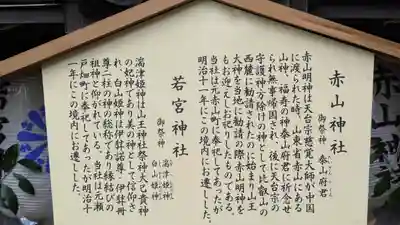 赤山神社
御祭神 泰山府君
赤山明神は天台宗慈覚大師が中国
に渡られた時、山東省赤山にある
山神、福寿の神泰山府君に祈念せ
られ無事帰国され、後に天台宗の
守護神方除けの神として比叡山の
西麓に勧請されたのに始り、山王
大神を当地に勧請の際赤山明神を
もお迎えしお祀りしたものである。
当社は元赤山町に奉祀してあったが
明治十一年この境内にお遷しした。
若宮神社
御祭神 湍津姫神
白山姫神
湍津姫神は山王神社祭神大己貴神
の妃神であり美の神として信仰さ
れ、白山姫神は伊弉諾尊、伊弉冊
尊二柱の神の総称であり縁結びの
祖神と仰がれている。当社は元瀬
戸畑町に奉祀してあったが明治十
一年にこの境内にお遷しした。
赤山神